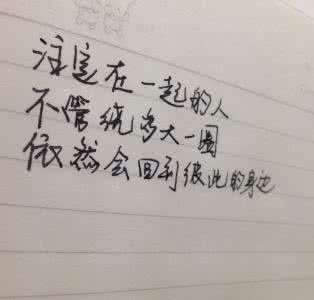 注定在一起的人
不管绕多大一圈
依然会回到彼此的身边